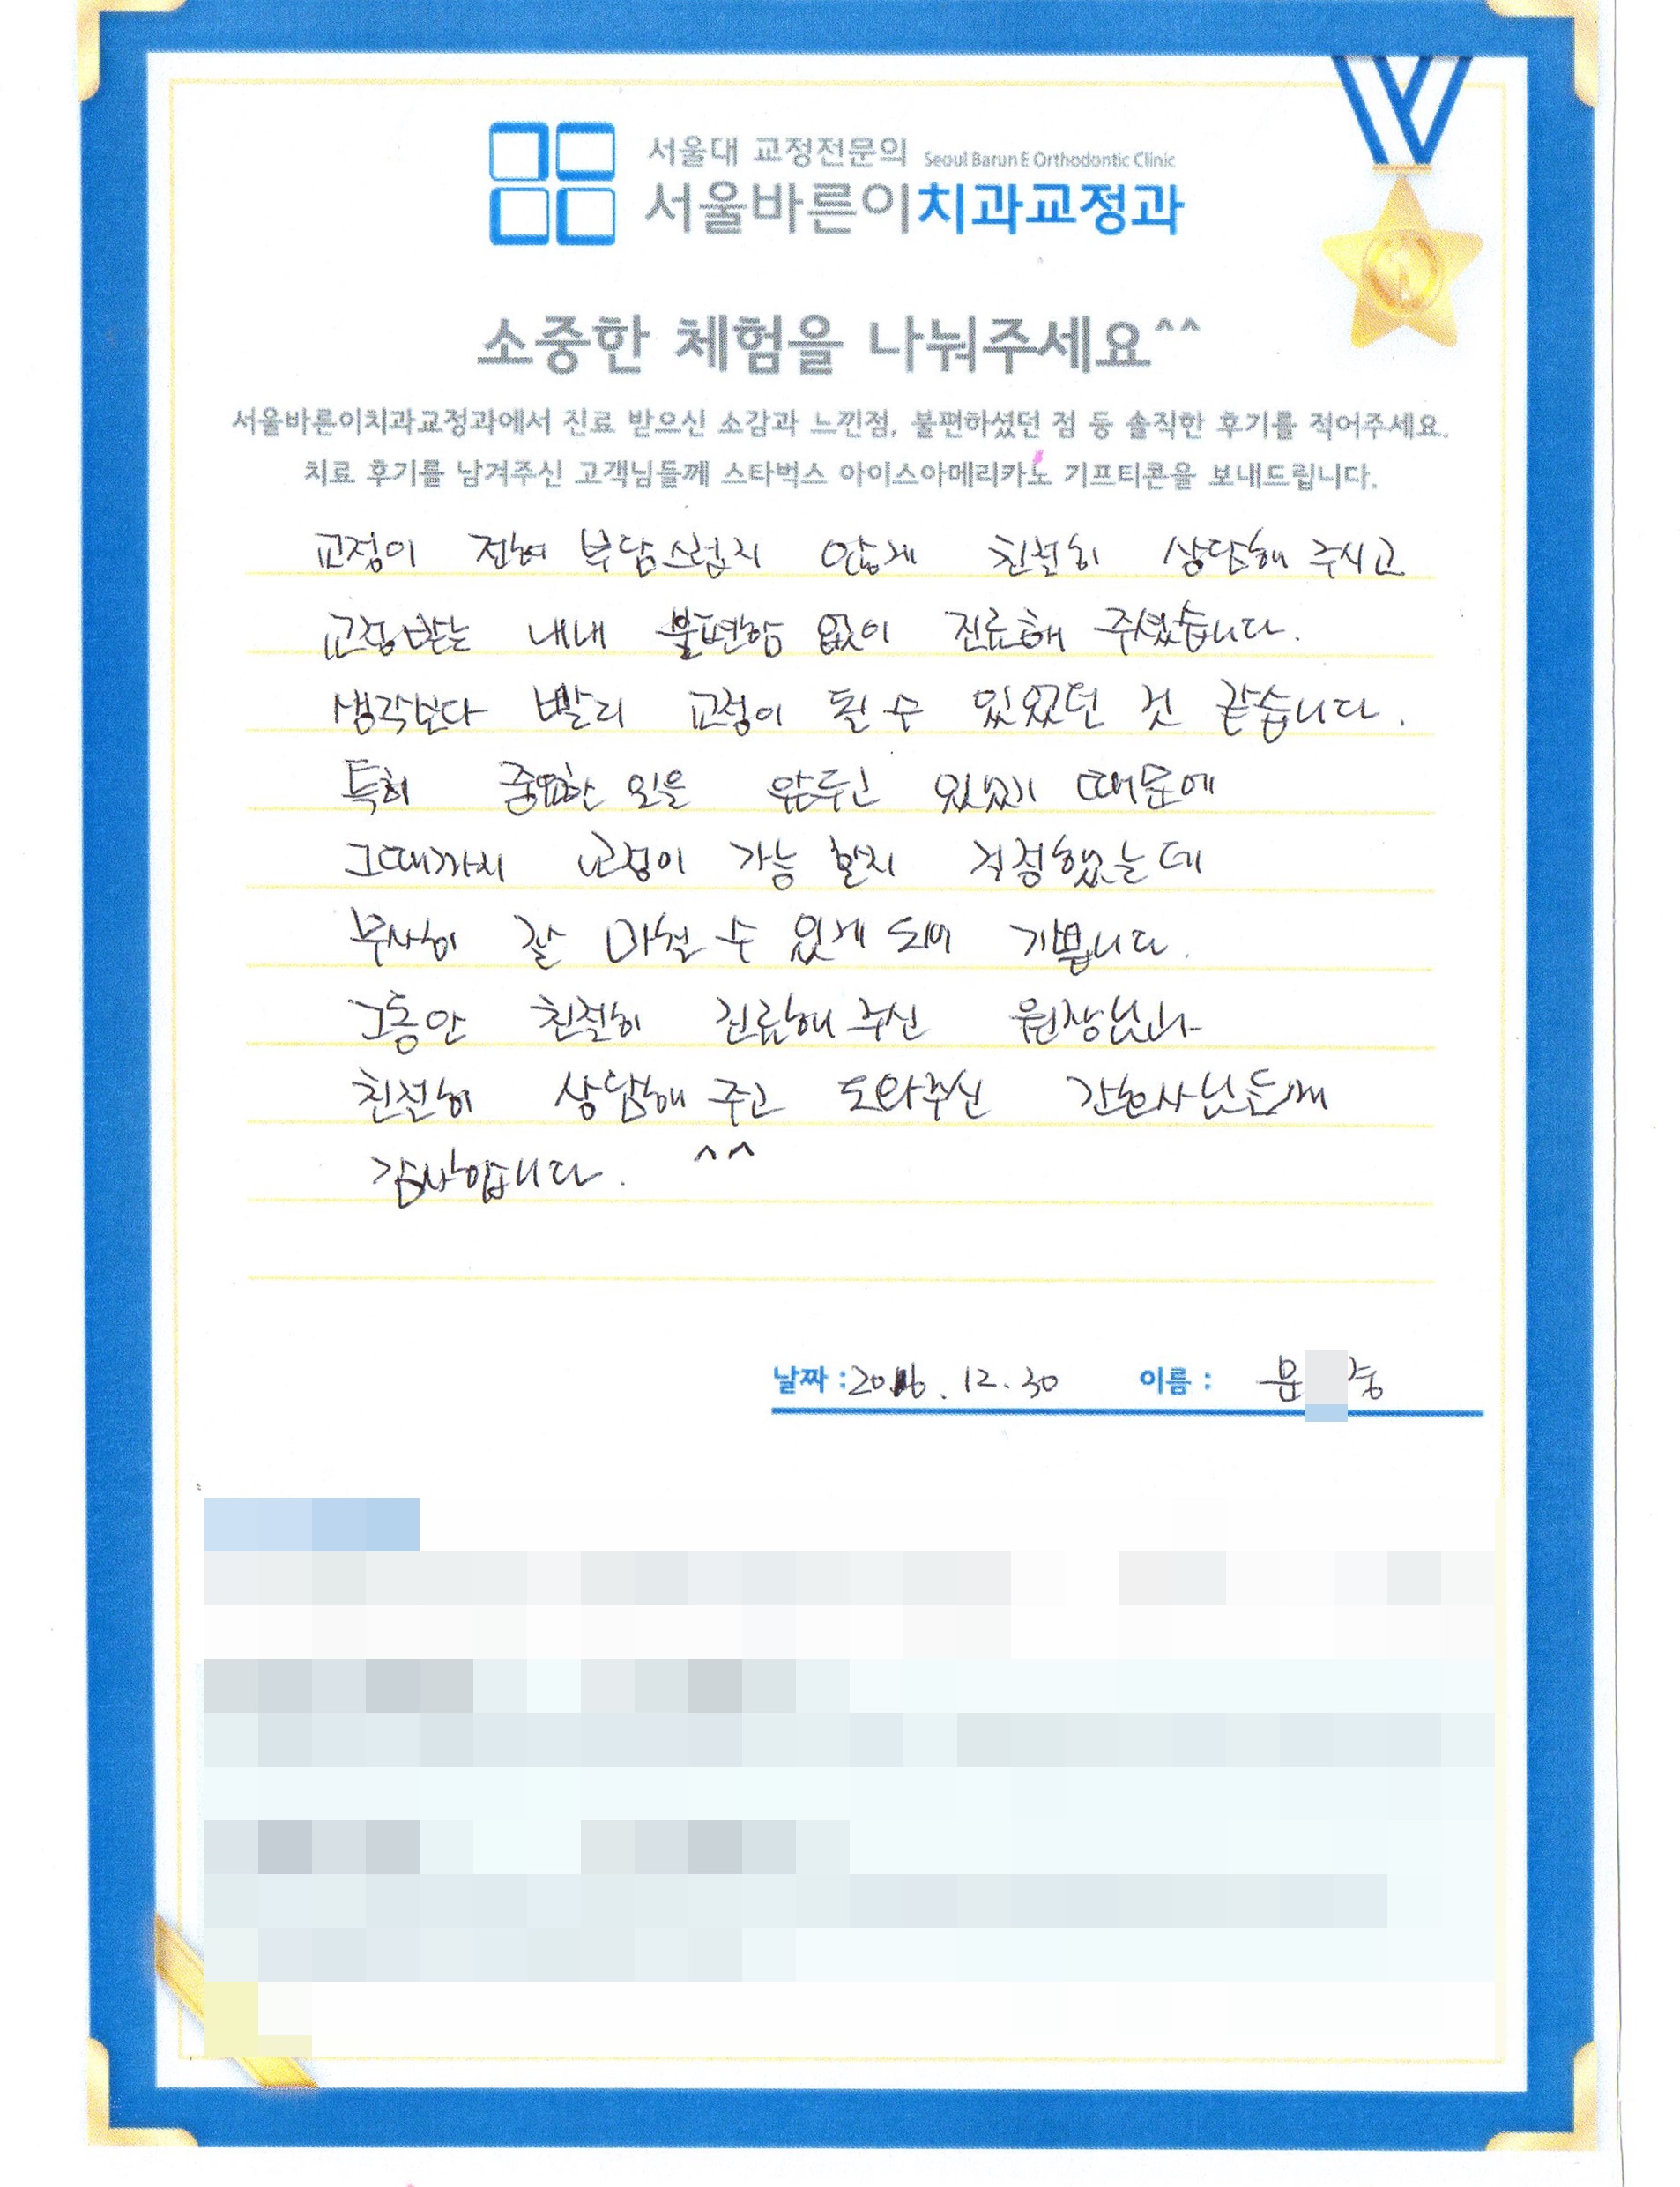 서울대 교정전문의 Seoul Barun E Orthodontic Clinic
서울바른이치과교정과
소중한 체험을 나눠주세요^^
서울바른이치과교정과에서 진료 받으신 소감과 느낀점, 불편하셨던 점 등 솔직한 후기를 적어주세요.
치료 후기를 남겨주신 고객님들께 스타벅스 아이스아메리카노 기프티콘을 보내드립니다.
교정이 전혀 부담스럽지 않게 친절히 상담해 주시고
교정받는 내내 불편함 없이 진료해 주셨습니다.
생각보다 빨리 교정이 될 수 있었던 것 같습니다.
특히 중요한 일을 앞두고 있었기 때문에
그때까지 교정이 가능 할지 걱정했는데
무사히 잘 마칠 수 있게 되어 기쁩니다.
그동안 친절히 진료해 주신 원장님과
친절히 상담해 주고 도와주신 간호사님들께
감사합니다. ^^
날짜 : 2016. 12. 30 이름 : 문